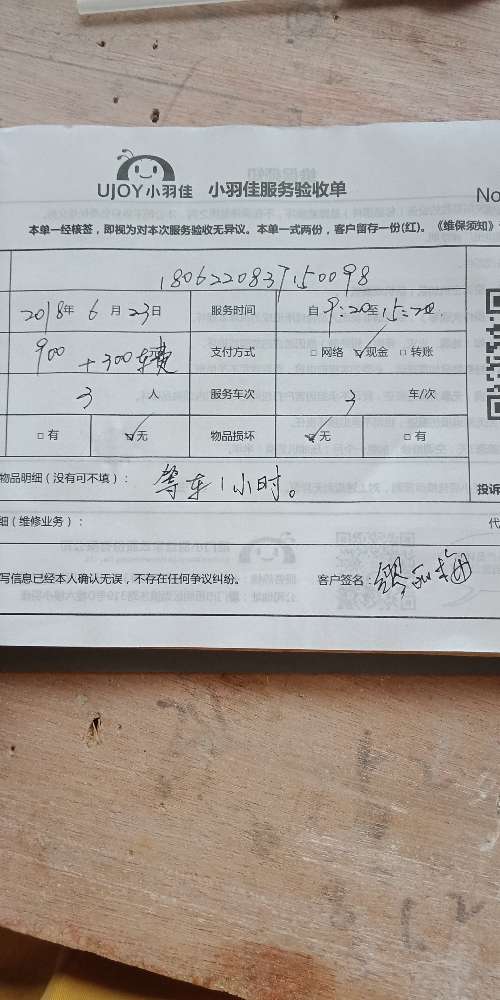 UJOY小羽佳 小羽佳服务验收单
No
本单一经核签，即视为对本次服务验收无异议。本单一式两份，客户留存一份(红)。《维保须知》
1806220837150098
2018年 6 月 23日 服务时间 自 9:20至15:20
900+300车费 支付方式 □网络 ☑现金 □转账
3 人 服务车次 3 车/次
□有 ☑无 物品损坏 ☑无 □有
物品明细（没有可不填）： 等车1小时。
投诉
细（维修业务）： 代
写信息已经本人确认无误，不存在任何争议纠纷。 客户签名：